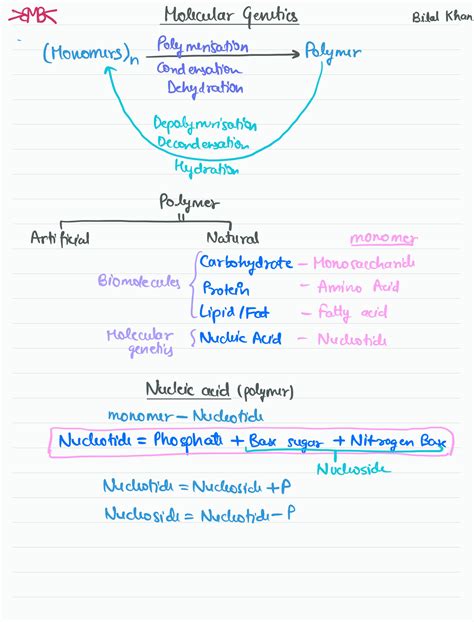 BMB Molecular Genetics Bilal Khan
(Monomers)n Polymerisation Polymer
Condensation
Dehydration
Depolymerisation
Decondensation
Hydration
Polymer
Artificial Natural monomer
Carbohydrate – Monosaccharide
Biomolecules Protein – Amino Acid
Lipid/Fat – Fatty acid
Molecular genetics Nucleic Acid – Nucleotide
Nucleic acid (polymer)
monomer – Nucleotide
Nucleotide = Phosphate + Base sugar + Nitrogen Base
Nucleoside
Nucleotide = Nucleoside + P
Nucleoside = Nucleotide – P